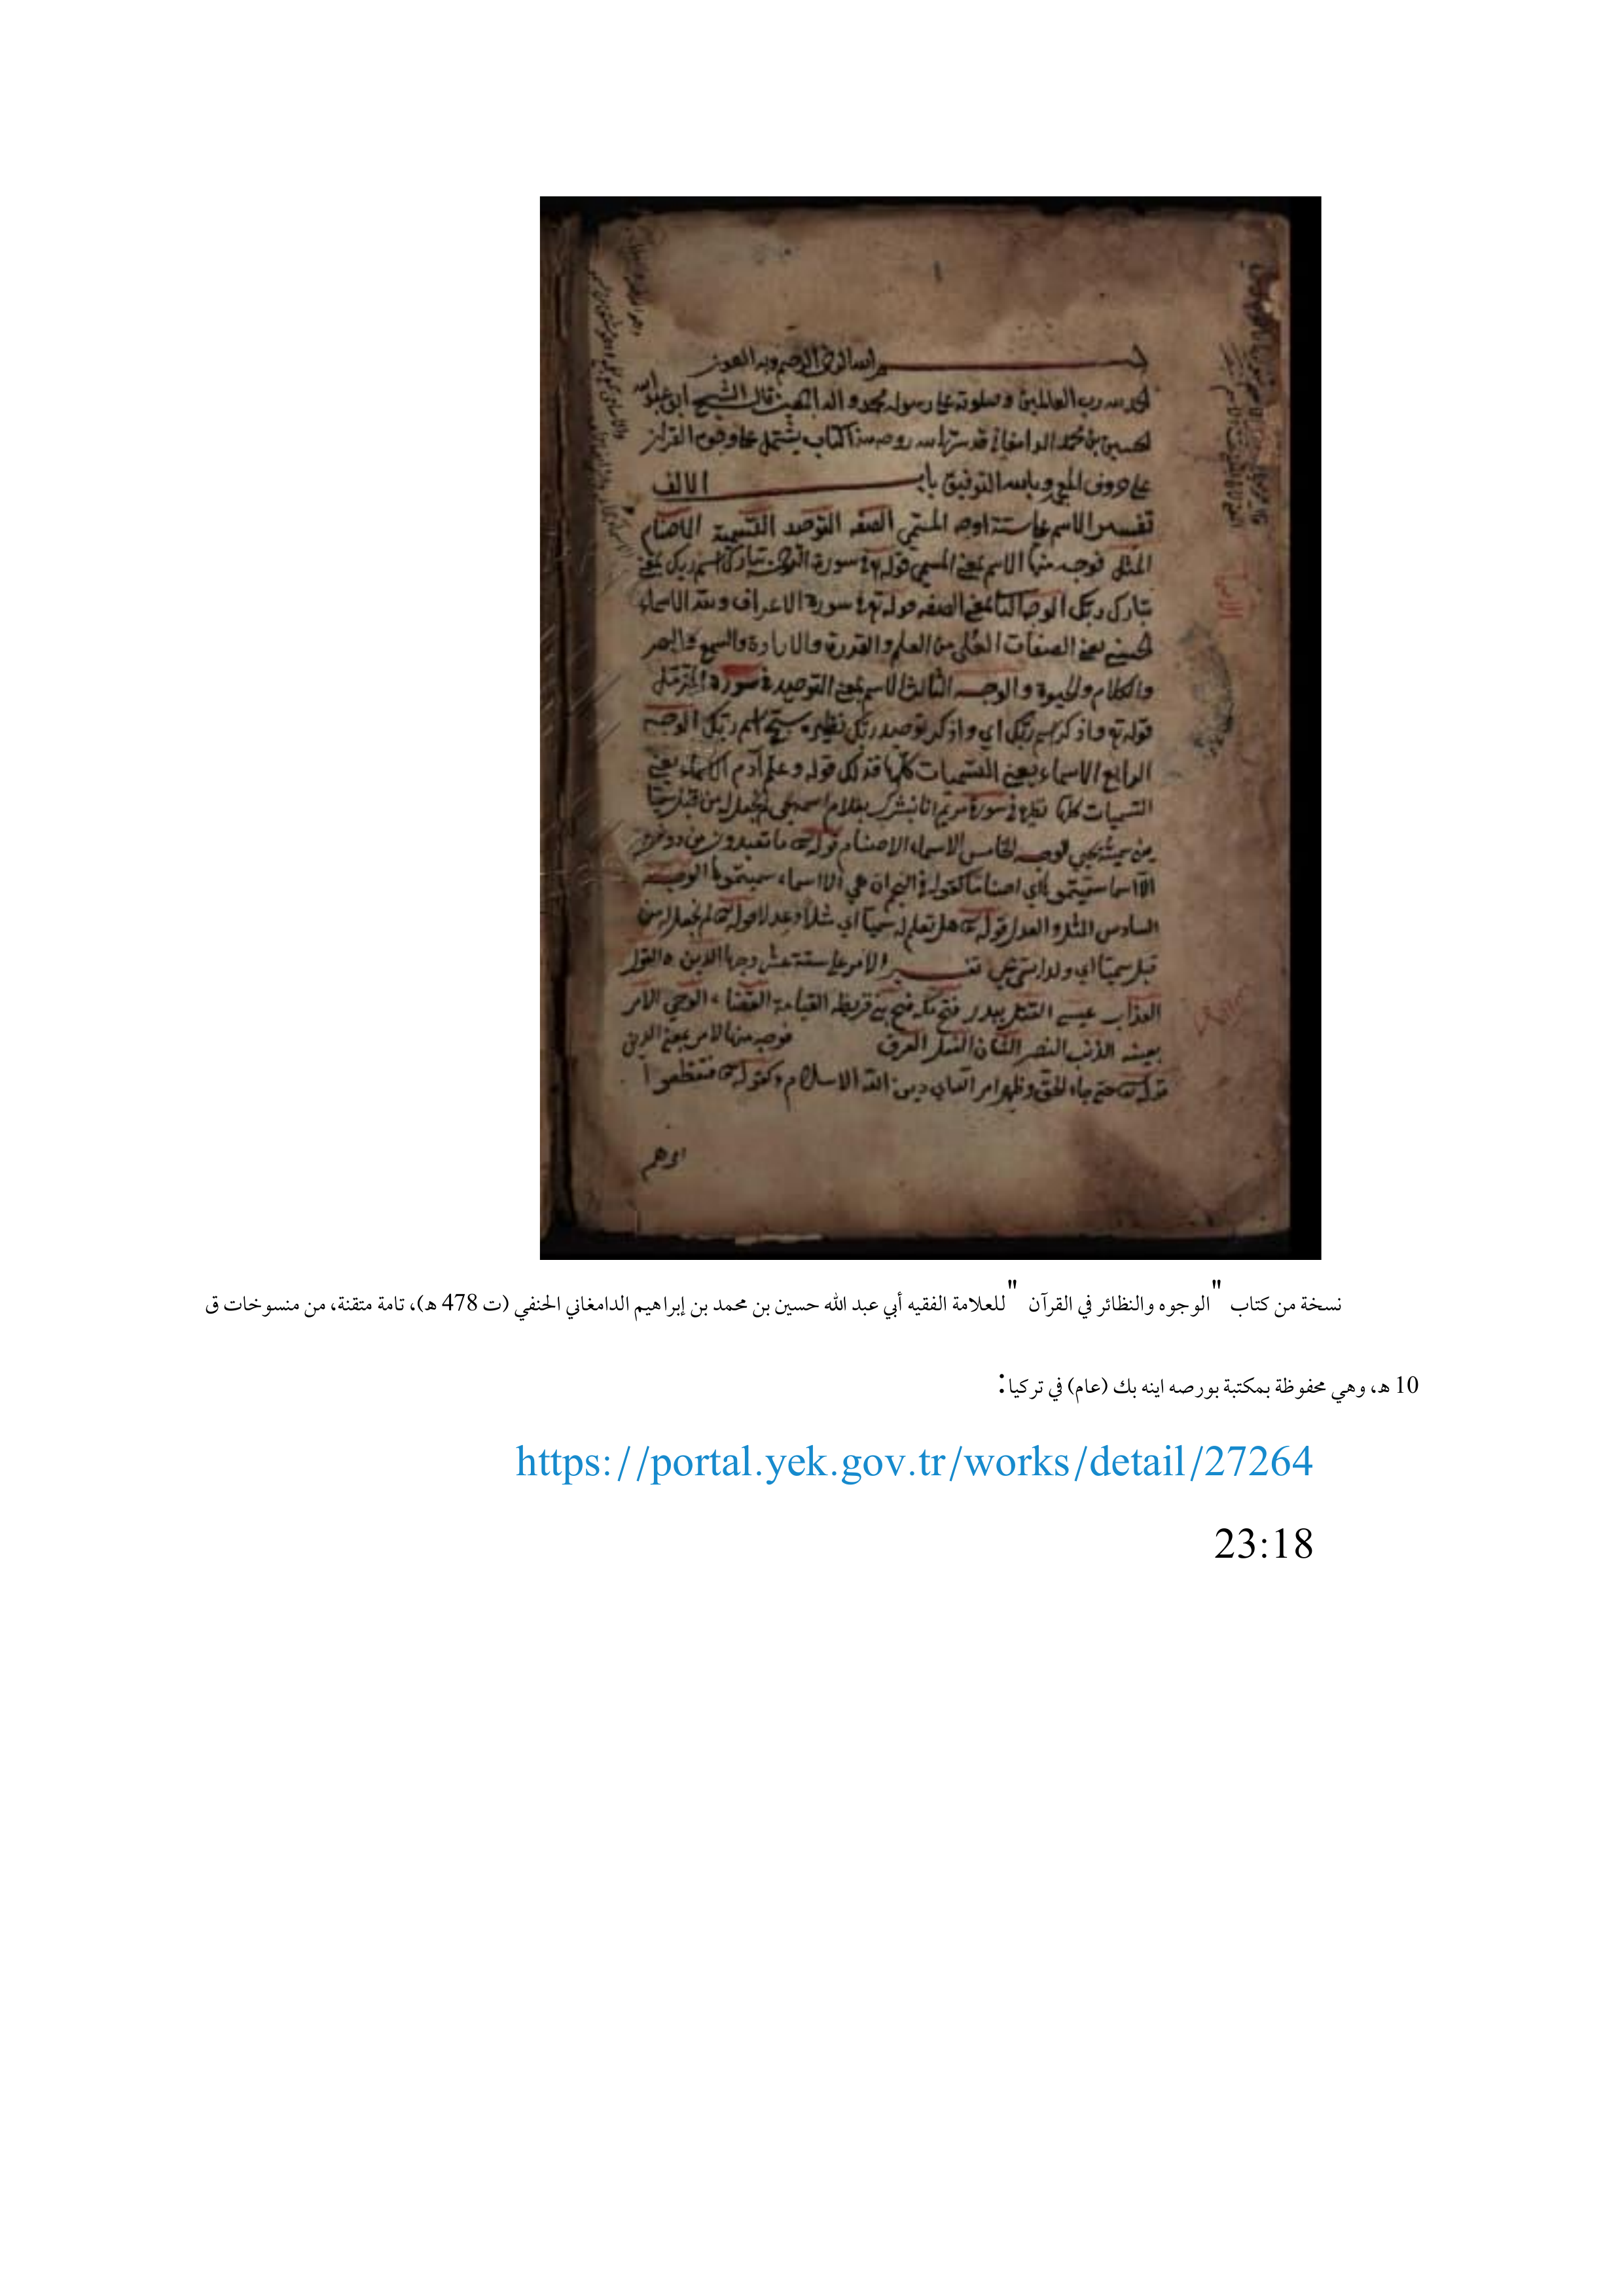 بسم الله الرحمن الرحيم وبه العون
الحمد لله رب العالمين وصلوته على رسوله محمد واله اجمعين قال الشيخ ابو عبد الله
الحسين بن محمد الدامغاني قدس الله روحه هذا كتاب يشتمل على وجوه القران
على حروف المعجم وبالله التوفيق باب الالف
تفسير الاسم على ستة اوجه المسمى الصفه التوحيد التسمية الاصنام
المثل فوجه منها الاسم بمعنى المسمى قوله تع في سورة الرحمن تبارك اسم ربك بمعنى
تبارك ربك الوجه الثاني بمعنى الصفه قوله تع في سورة الاعراف ولله الاسماء
الحسنى بمعنى الصفات العلى من العلم والقدرة والارادة والسمع والبصر
والكلام والحيوة والوجه الثالث الاسم بمعنى التوحيد في سورة المزمل
قوله تع واذكر اسم ربك اي واذكر توحيد ربك نظيره سبح اسم ربك الوجه
الرابع الاسماء بمعنى التسميات كلها فذلك قوله وعلم آدم الاسماء يعني
التسميات كلها نظيره في سورة مريم انا نبشرك بغلام اسمه يحيى لم نجعل له من قبل سميا
الوجه الخامس الاسماء الاصنام قوله تع ما تعبدون من دونه
الا اسما سميتموها اي اصناما كقوله في النجم ان هي الا اسماء سميتموها الوجه
السادس المثل والعدل قوله تع هل تعلم له سميا اي مثلا وعدلا قوله تع لم نجعل له من
قبل سميا اي ولدا تفسير الامر على ستة عشر وجها الدين القول
العذاب عيسى القتل ببدر فتح مكة فتح بني قريظه القيامة القضاء الوحي الامر
بعينه الذنب النصر الشان الفعل الغرق فوجه منها الامر بمعنى الدين
قوله تع حتى جاء الحق وظهر امر الله اي دين الله الاسلام وكقوله تع فتقطعوا
امرهم
نسخة من كتاب "الوجوه والنظائر في القرآن" للعلامة الفقيه أبي عبد الله حسين بن محمد بن إبراهيم الدامغاني الحنفي (ت 478 هـ)، تامة متقنة، من منسوخات ق
10 هـ، وهي محفوظة بمكتبة بورصه اينه بك (عام) في تركيا:
https://portal.yek.gov.tr/works/detail/27264
23:18